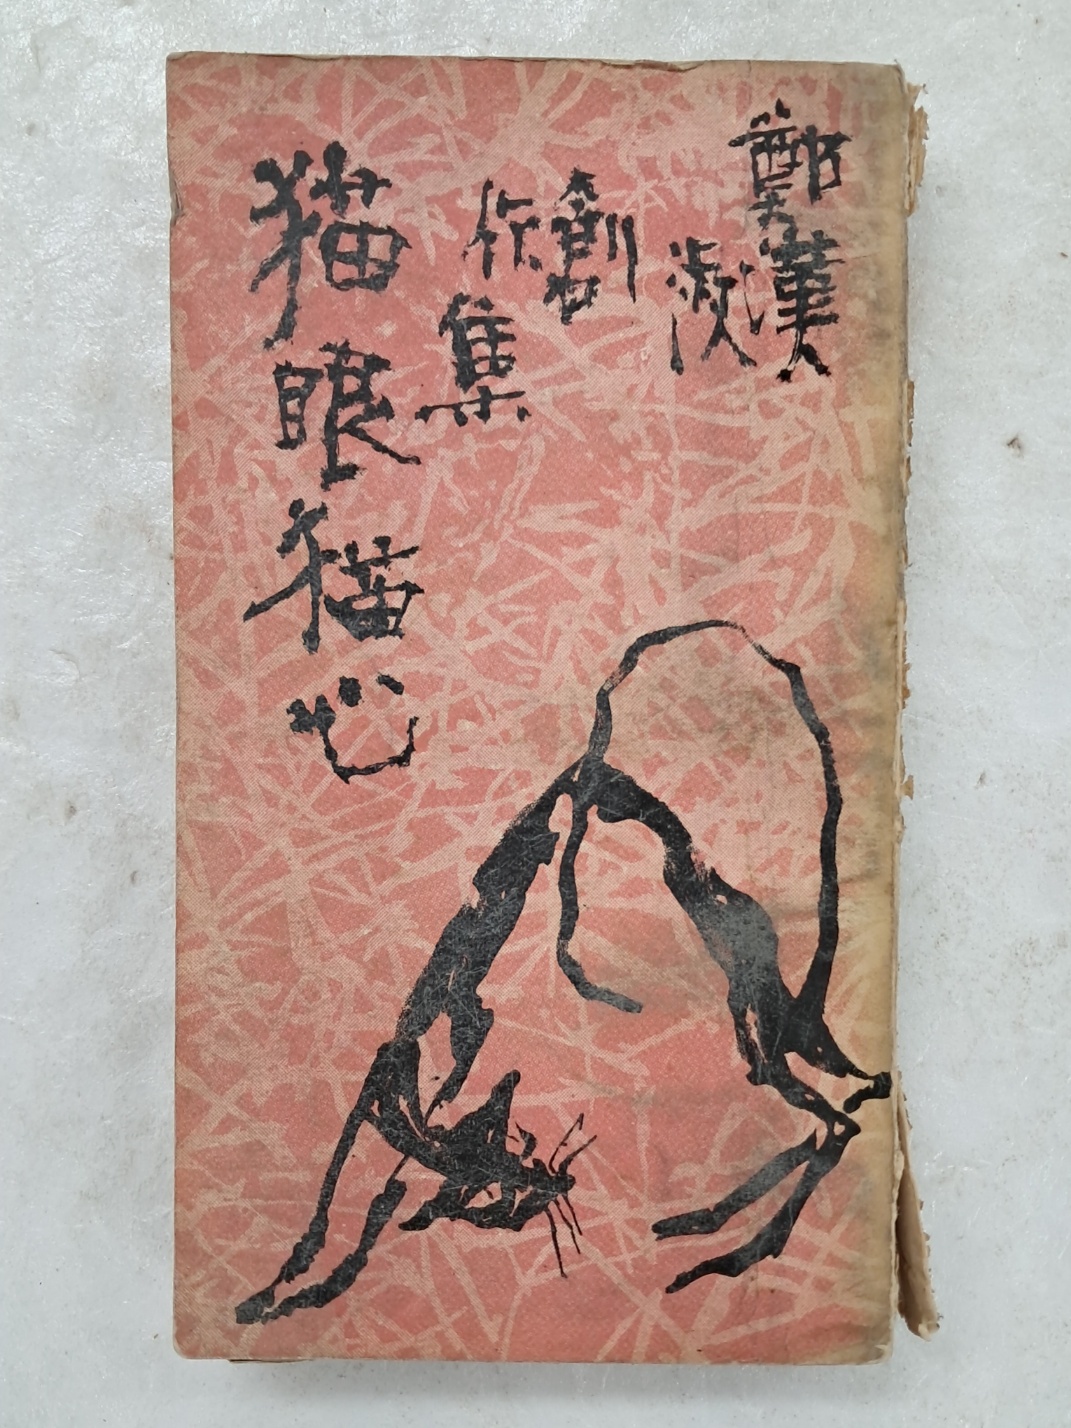 鄭漢
淑
創
作集
猫眼猫心